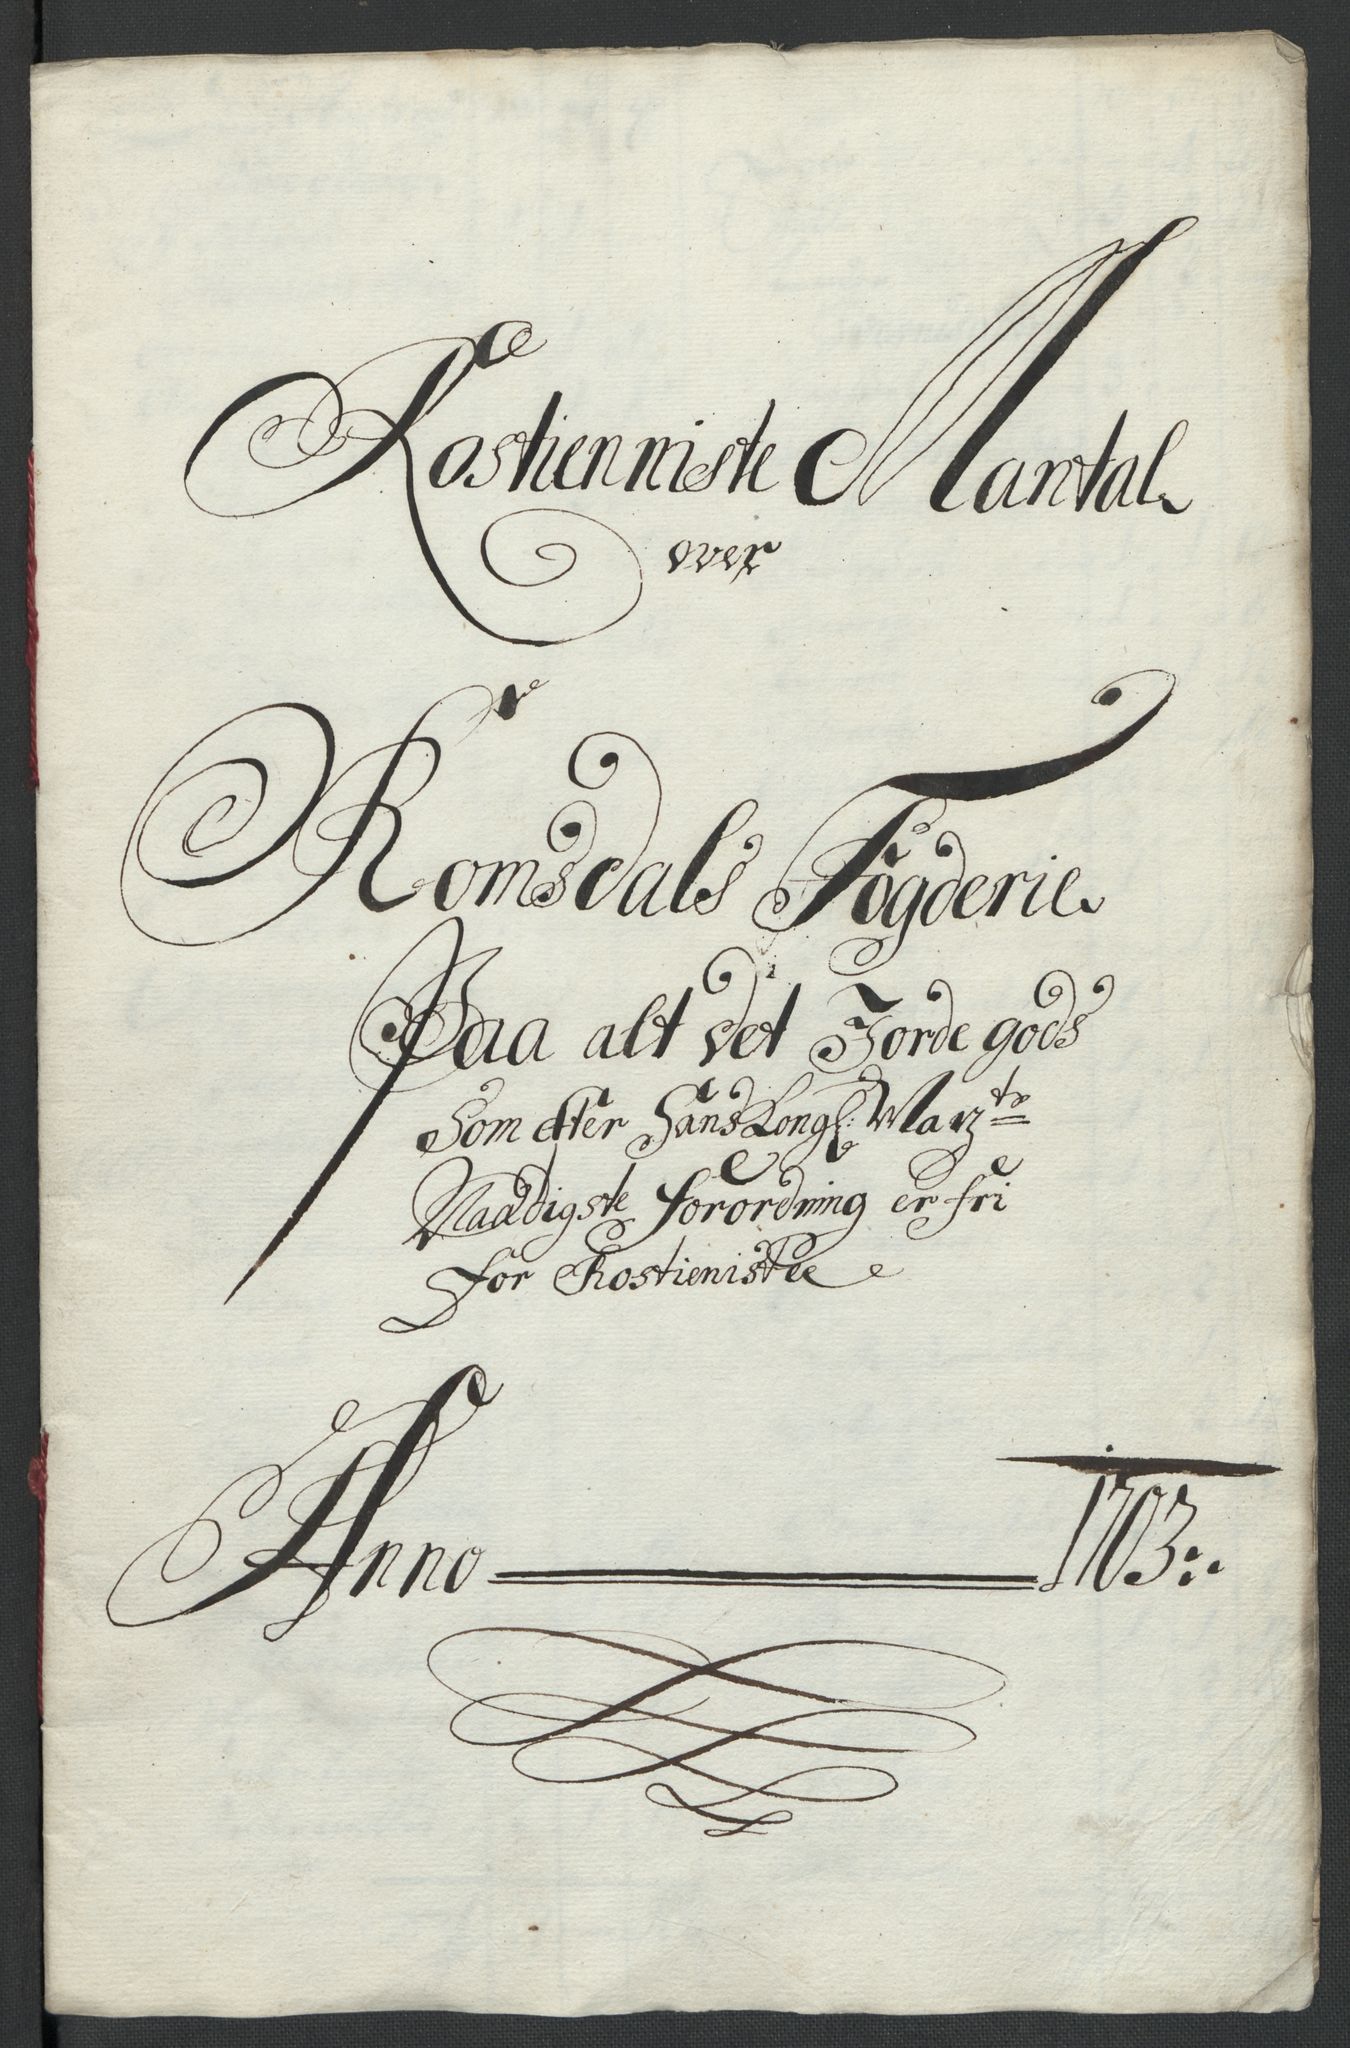 Rostienniste Mantal
over
Romsdals Fogderie
Paa alt det Jorde gods
Som efter Hans Kongl: Mayz:ts
Naadigste forordning er fri
for Rostieniste
Anno 1703:.